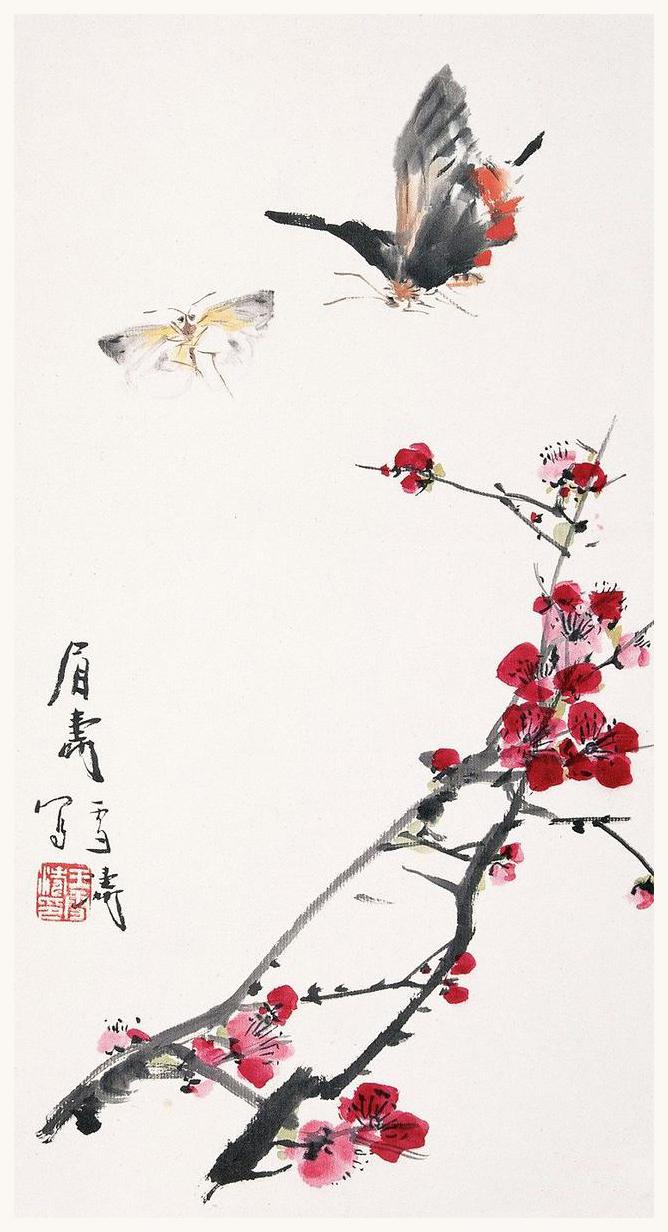 眉壽
雪濤
寫
王雪濤印